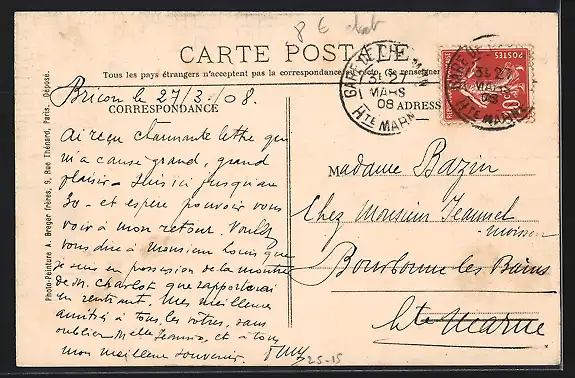 8 6
CARTE POSTALE
Tous les pays étrangers n'acceptent pas la correspondance au recto. (Se renseigner
Bricon le 27/3/08.
CORRESPONDANCE
ADRESSE
GARE DE
3E 27
MARS
08
HTE MARNE
GARE DE
3E 27
MARS
08
HTE MARNE
POSTES
10
Photo-Peinture A. Breger frères, 9, Rue Thénard, Paris. Déposé.
ai reçu charmante lettre qui
m'a causé grand, grand
plaisir - suis ici jusqu'au
30 - et espère pouvoir vous
voir à mon retour. Voulez
vous dire à Monsieur Louis que
je suis en possession de la montre
de Mr. Charlot que rapporterai
en rentrant. Mes meilleures
amitiés à tous les vôtres, sans
oublier Melle Jeanne, et à tous
mon meilleur souvenir.
25-15
Madame Bazin
Chez Monsieur Jeannel
Bourbonne les Bains
Hte Marne